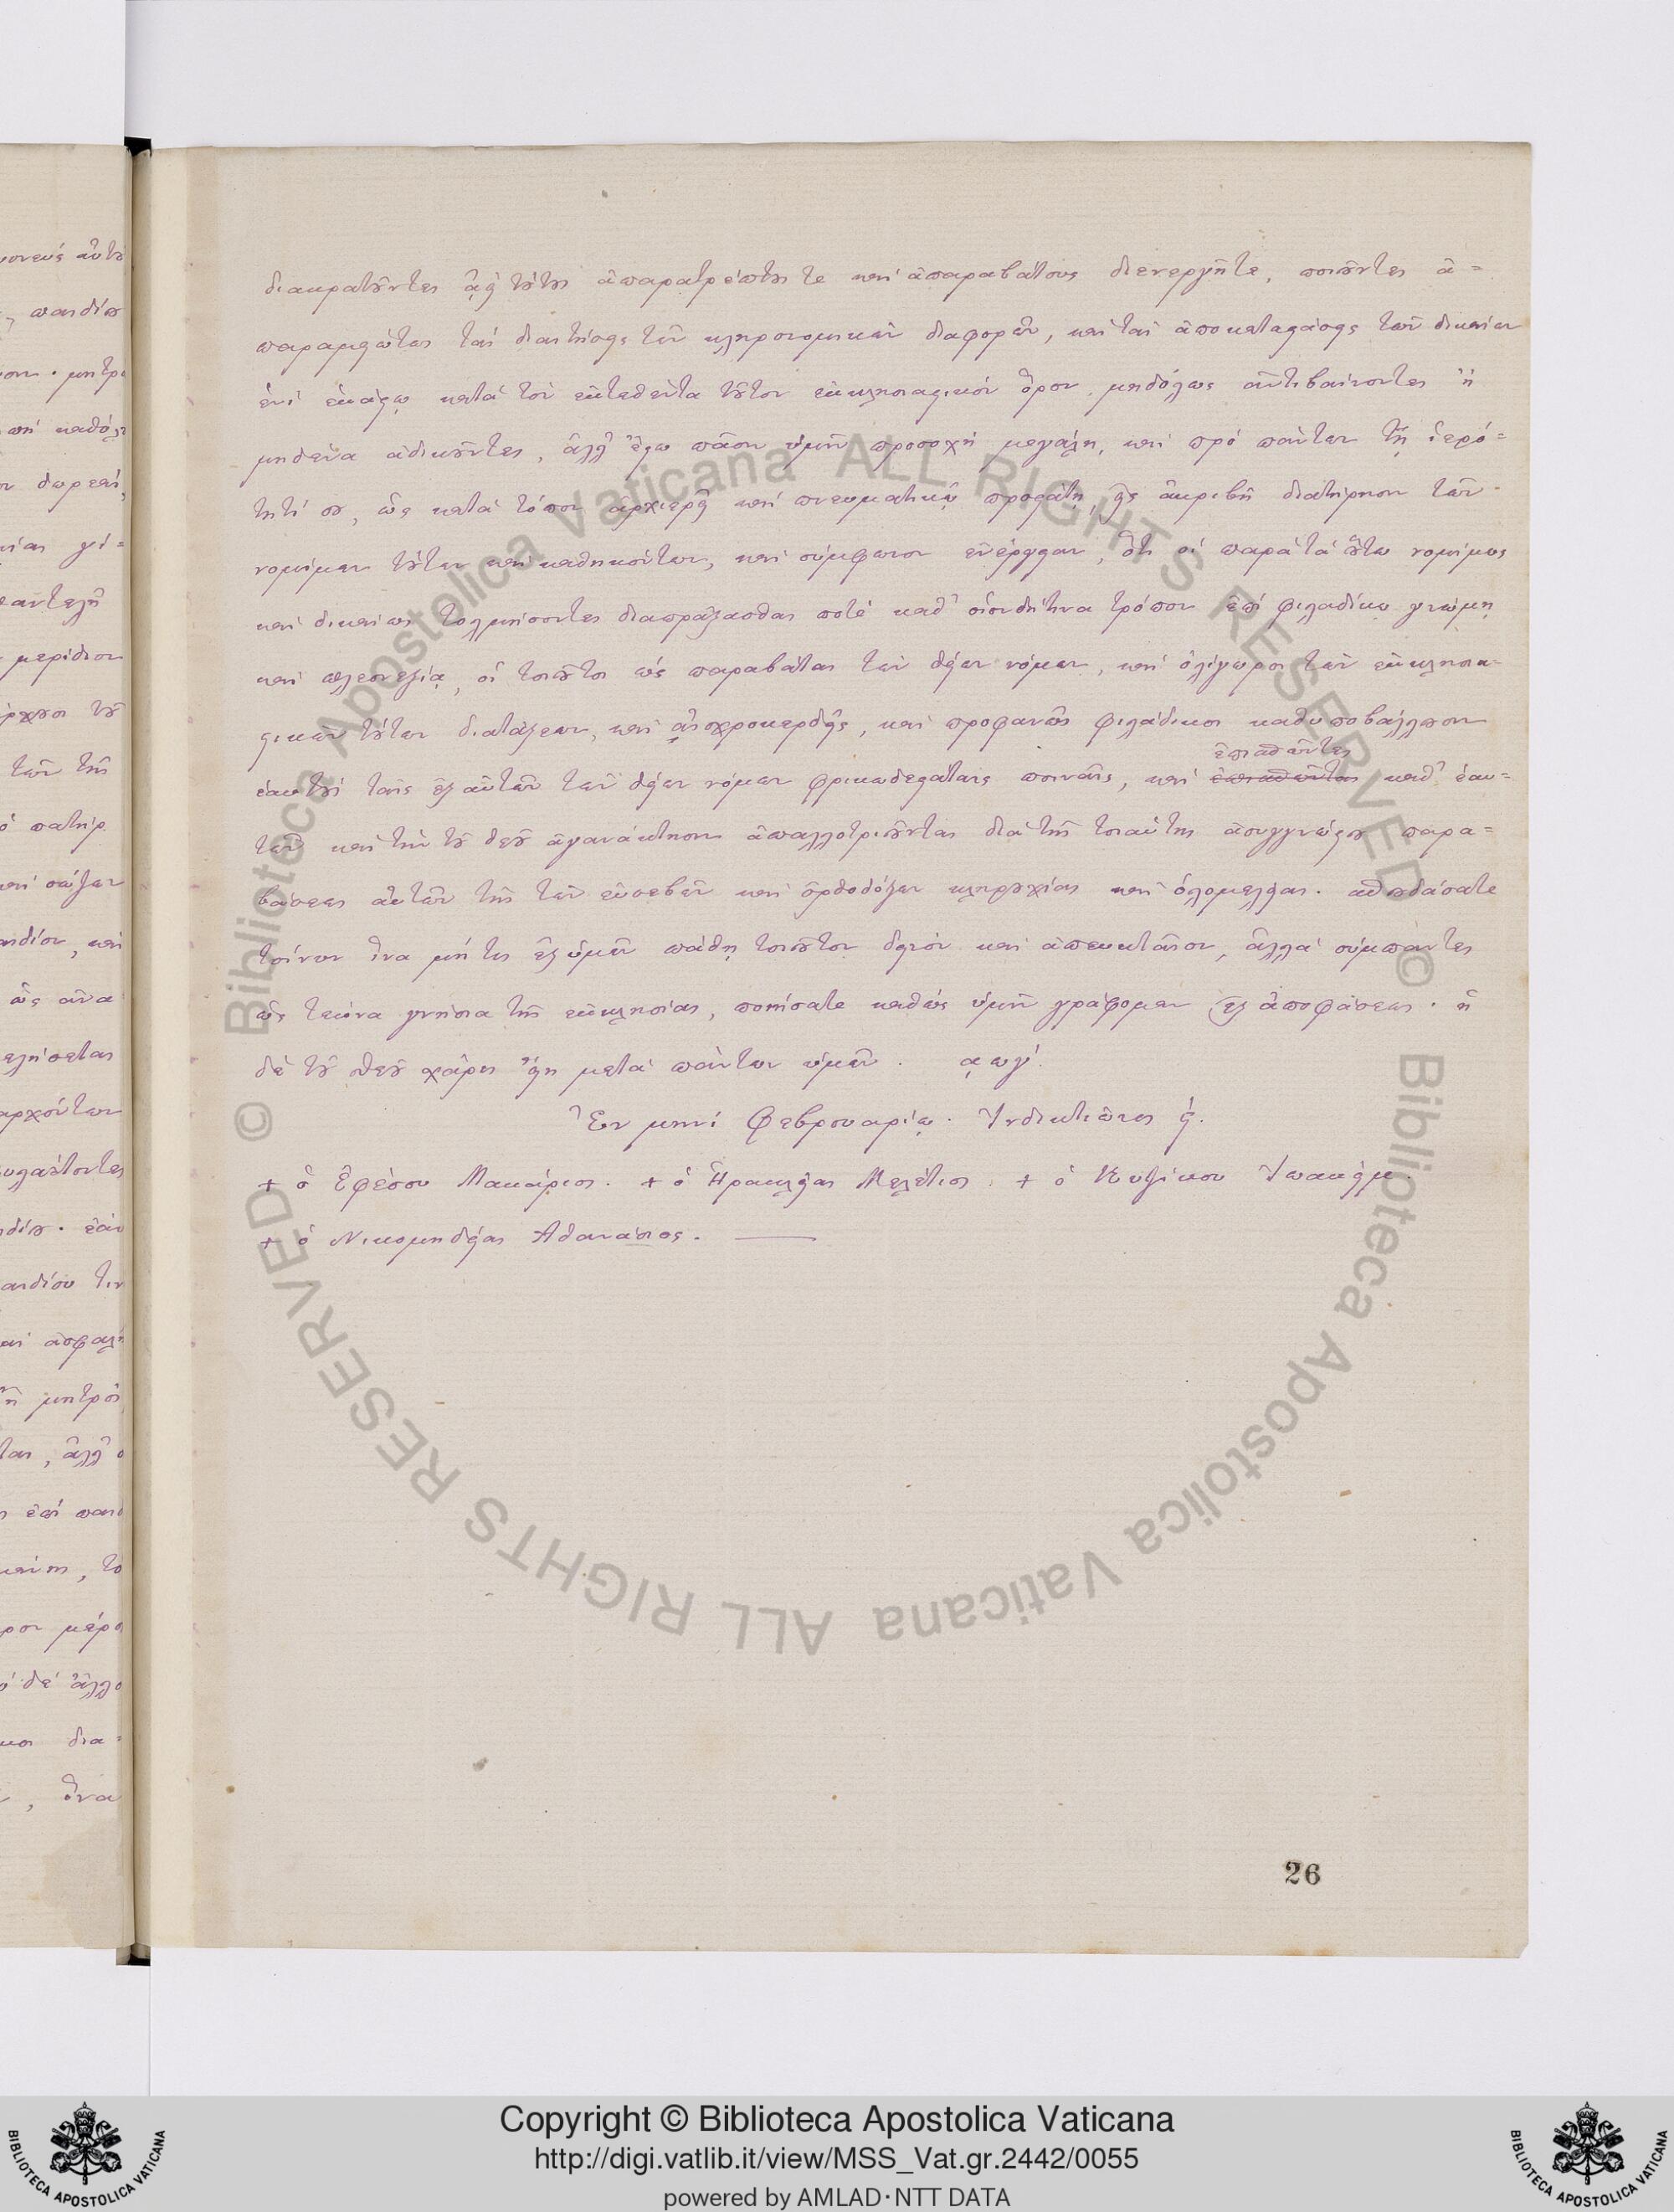 διακρατοῦντες ἀεὶ τούτους ἀπαρατρέπτους τε καὶ ἀπαραβάτους διενεργῆτε, ποιοῦντες ἀ=
παραμειώτως τὰς διαιτήσεις τῶν κληρονομικῶν διαφορῶν, καὶ τὰς ἀποκαταστάσεις τῶν δικαίων
ἑνὶ ἑκάστῳ κατὰ τὸν ἐκτεθέντα τοῦτον ἐκκλησιαστικὸν ὅρον, μηδόλως ἀντιβαίνοντες ἢ
μηδένα ἀδικοῦντες, ἀλλ' ἔστω πᾶσιν ὑμῖν προσοχὴ μεγάλη, καὶ πρὸ πάντων τῇ ἱερό=
τητί σου, ὡς κατὰ τόπον ἀρχιερεῖ καὶ πνευματικῷ προστάτῃ, εἰς ἀκριβῆ διατήρησιν τῶν
νομίμων τούτων καὶ καθηκόντων, καὶ σύμφωνον ἐνέργειαν, ὅτι οἱ παρὰ τὰ οὕτω νομίμως
καὶ δικαίως τολμήσοντες διαπράξασθαι ποτὲ καθ' οἱονδήτινα τρόπον ἐπὶ φιλαδίκῳ γνώμῃ
καὶ πλεονεξίᾳ, οἱ τοιοῦτοι ὡς παραβάται τῶν θείων νόμων, καὶ ὀλίγωροι τῶν ἐκκλησια-
στικῶν τούτων διατάξεων, καὶ αἰσχροκερδεῖς, καὶ προφανῶς φιλάδικοι καθυποβάλλουσιν
ἐπισπῶντες
ἑαυτοὺς ταῖς ἐξ αὐτῶν τῶν θείων νόμων φρικωδεστάταις ποιναῖς, καὶ ἐπισπῶνται καθ' ἑαυ-
τῶν καὶ τὴν τοῦ θεοῦ ἀγανάκτησιν ἀπαλλοτριοῦνται διὰ τῆς τοιαύτης ἀσυγγνώστου παρα=
βάσεως αὐτῶν τῆς τῶν εὐσεβῶν καὶ ὀρθοδόξων κληρουχίας καὶ ὁλομελείας. σπουδάσατε
τοίνυν ἵνα μή τις ἐξ ὑμῶν πάθῃ τοιοῦτον δεινὸν καὶ ἀπευκταῖον, ἀλλὰ σύμπαντες
ὡς τέκνα γνήσια τῆς ἐκκλησίας, ποιήσατε καθὼς ὑμῖν γράφομεν ἐξ ἀποφάσεως. ἡ
δὲ τοῦ θεοῦ χάρις εἴη μετὰ πάντων ὑμῶν. ͵αωγ΄.
Ἐν μηνὶ Φεβρουαρίῳ. Ἰνδικτιῶνος ϛ΄.
+ ὁ Ἐφέσου Μακάριος. + ὁ Ἡρακλείας Μελέτιος. + ὁ Κυζίκου Ἰωακείμ.
+ ὁ Νικομηδείας Ἀθανάσιος.
26
Copyright © Biblioteca Apostolica Vaticana
http://digi.vatlib.it/view/MSS_Vat.gr.2442/0055
powered by AMLAD·NTT DATA
© Biblioteca Apostolica Vaticana ALL RIGHTS RESERVED
© Biblioteca Apostolica Vaticana ALL RIGHTS RESERVED
BIBLIOTECA APOSTOLICA VATICANA
BIBLIOTECA APOSTOLICA VATICANA